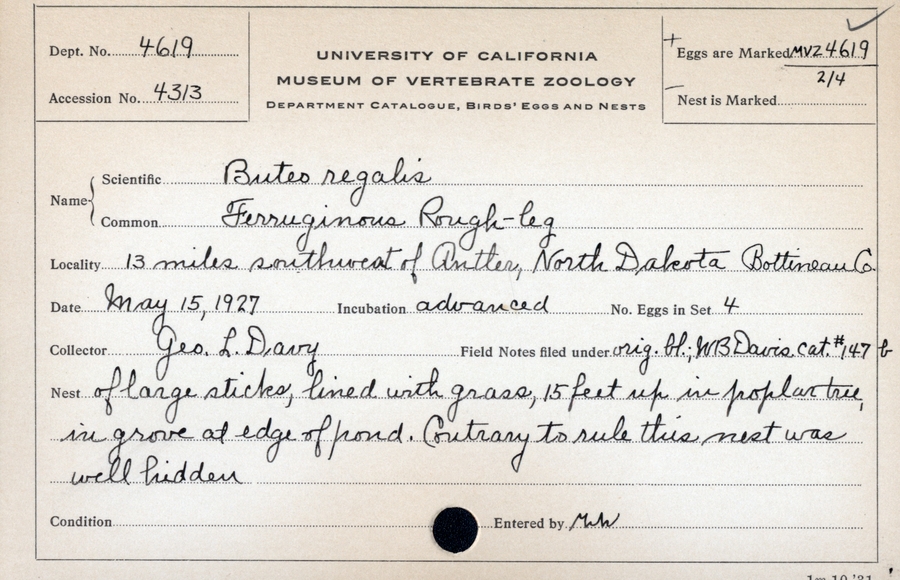 Dept. No. 4619
Accession No. 4313
UNIVERSITY OF CALIFORNIA
MUSEUM OF VERTEBRATE ZOOLOGY
DEPARTMENT CATALOGUE, BIRDS' EGGS AND NESTS
+ Eggs are Marked MVZ 4619
2/4
– Nest is Marked
Name
Scientific Buteo regalis
Common Ferruginous Rough-leg
Locality 13 miles southwest of Antler, North Dakota Bottineau Co.
Date May 15, 1927 Incubation advanced No. Eggs in Set 4
Collector Geo. L. Davy Field Notes filed under orig. bl.; WB Davis cat. #147 b
Nest of large sticks, lined with grass, 15 feet up in poplar tree,
in grove at edge of pond. Contrary to rule this nest was
well hidden
Condition Entered by
1m 10 '31